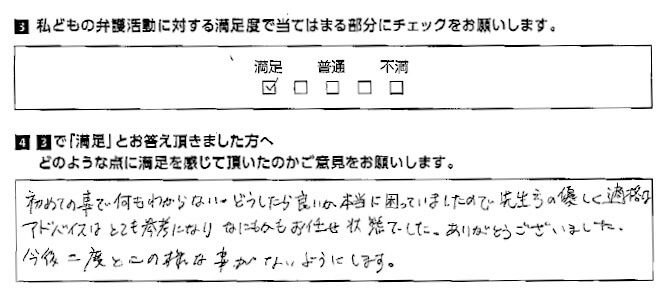 3 私どもの弁護活動に対する満足度で当てはまる部分にチェックをお願いします。
満足 普通 不満
4 3で「満足」とお答え頂きました方へ
どのような点に満足を感じて頂いたのかご意見をお願いします。
初めての事で何もわからない、どうしたら良いか本当に困っていましたので先生方の優しく適格な
アドバイスはとても参考になりなにもかもお任せ状態でした。ありがとうございました。
今後二度とこの様な事がないようにします。